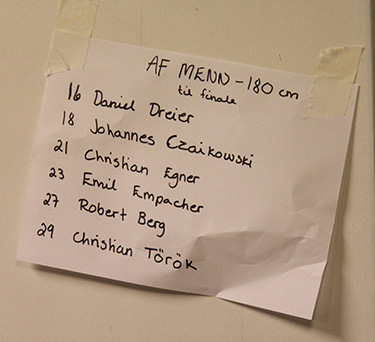 AF MENN - 180 cm
til finale
16 Daniel Dreier
18 Johannes Czaikowski
21 Christian Egner
23 Emil Empacher
27 Robert Berg
29 Christian Török